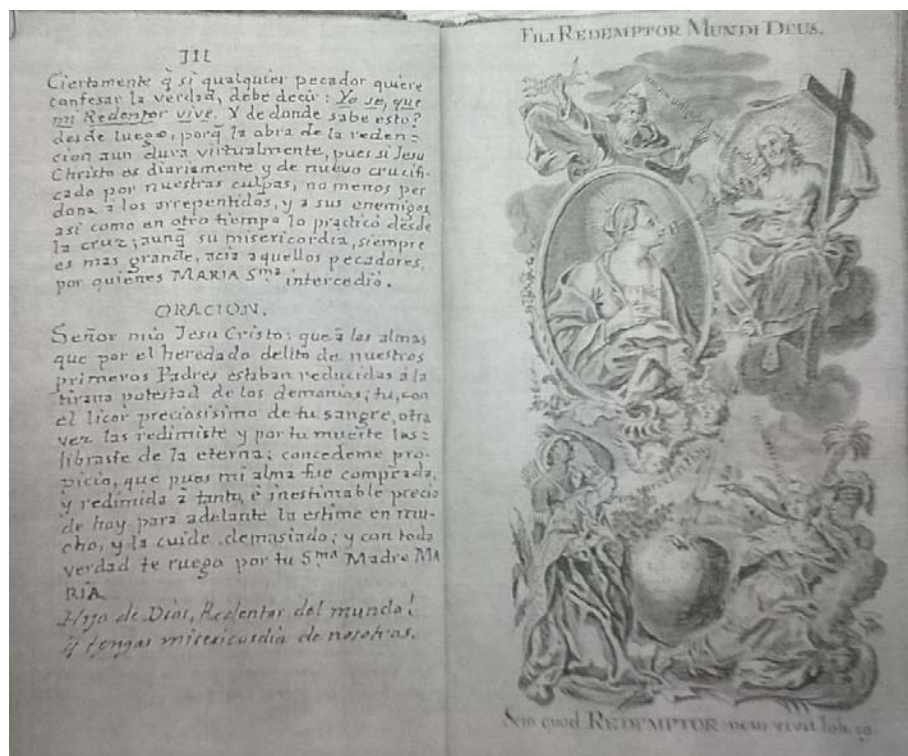 III
Ciertamente q̃ si qualquier pecador quiere
confesar la verdad, debe decir: Yo se, que
mi Redentor vive. Y de donde sabe esto?
desde luego, porq̃ la obra de la reden=
cion aun dura virtualmente, pues si Jesu
Christo es diariamente y de nuevo crucifi-
cado por nuestras culpas, no menos per
dona a los arrepentidos, y a sus enemigos
asi como en otro tiempo lo practicó desde
la cruz; aunq̃ su misericordia, siempre
es mas grande, acia aquellos pecadores,
por quienes MARIA S.ma intercedió.
ORACION.
Señor mio Jesu Cristo; que à las almas
que por el heredado delito de nuestros
primeros Padres estaban reducidas à la
tirana potestad de los demonios; tu, con
el licor preciosisimo de tu sangre, otra
vez las redimiste y por tu muerte las=
libraste de la eterna; concedeme pro-
picio, que pues mi alma fue comprada,
y redimida à tanto, è inestimable precio
de hoy para adelante la estime en mu-
cho, y la cuide demasiado; y con toda
verdad te ruego por tu S.ma Madre MA
RIA.
Hijo de Dios, Redentor del mundo!
q̃ tengas misericordia de nosotros.
FILI REDEMPTOR MUNDI DEUS.
Scio quod REDEMPTOR meus vivit Iob. 19